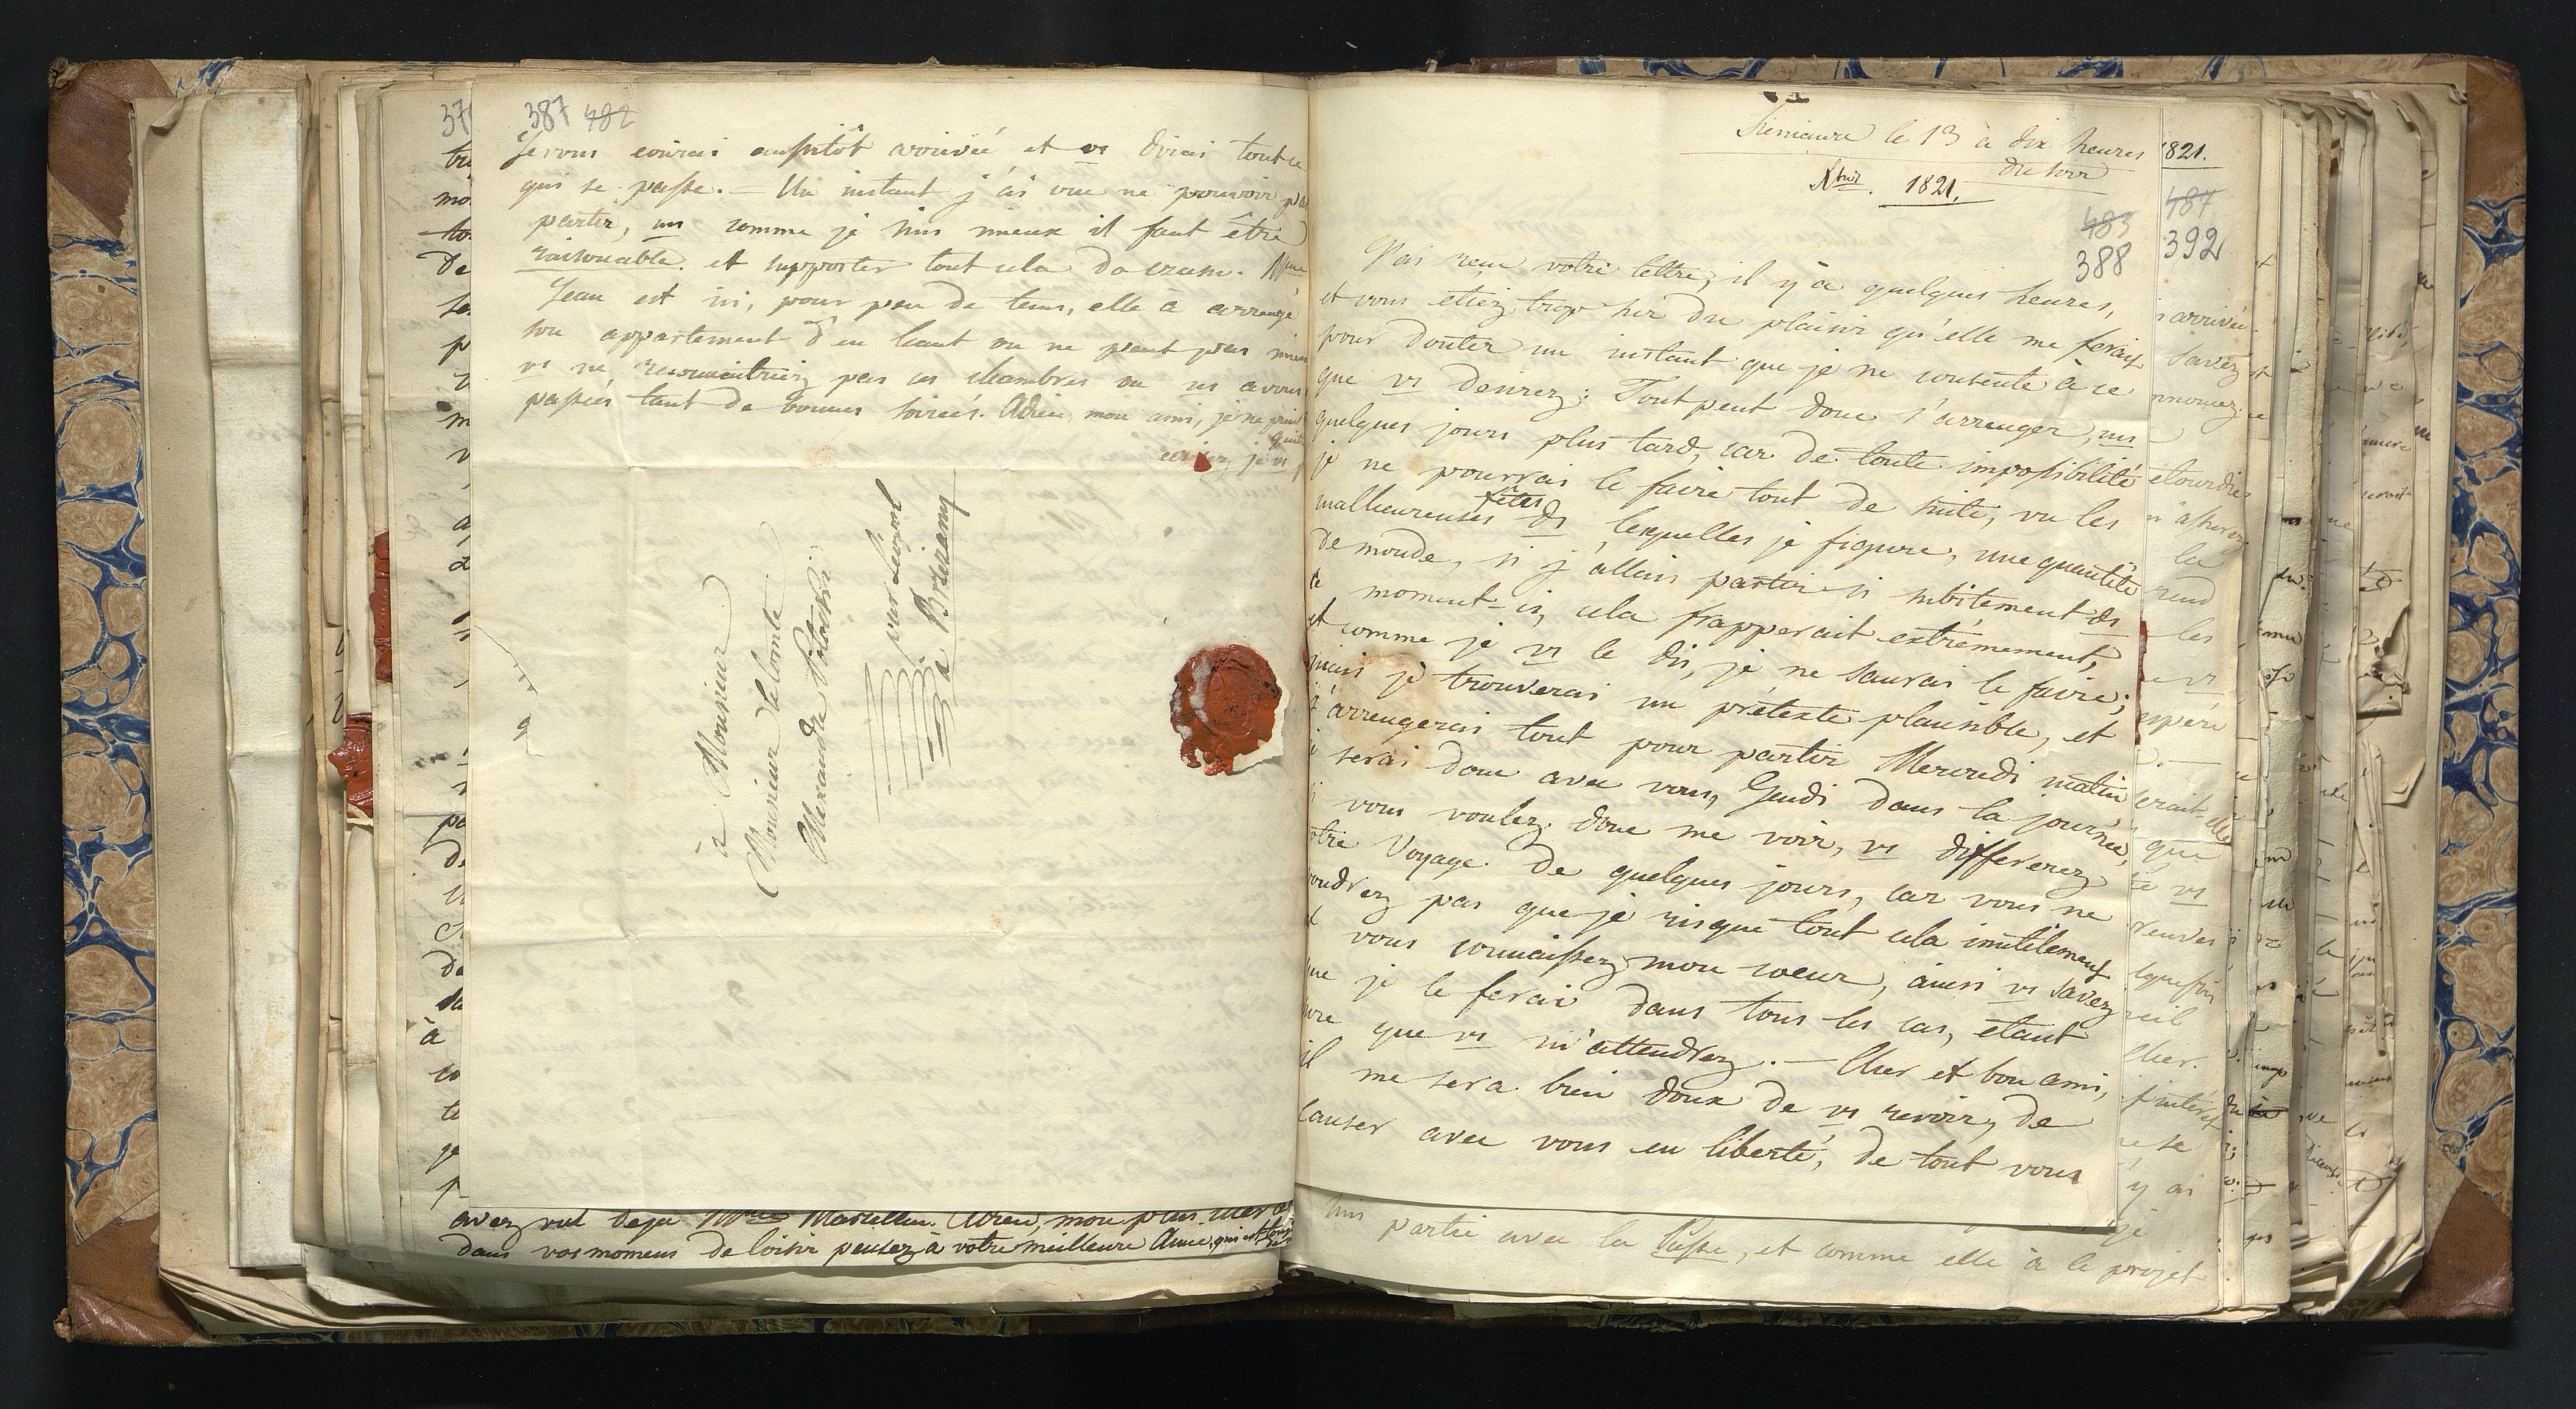 387 482
Je vous ecrirai aussitôt arrivée et vs dirai tout ce
qui se passe. — Un instant j'ai vue ne pouvoir pas
partir, ms comme je suis mieux il faut être
raisonable et supporter tout cela
Jean est ici, pour peu de tems, elle à arrangé
son appartement d'en haut on ne peut pas mieux
vs ne reconnaitriez pas ces chambres ou ns avons
passées tant de bonnes soirées. Adieu, mon ami, je ne puis
à Monsieur
Monsieur le Comte
Alexandre Potocki
par Léopol
à Brzezany
avez vut deja Mme Adieu, mon plus cher
dans vos momens de loisir pensez à votre meilleure Amie, qui est
Sieniawa le 13 à dix heures
du soir
1821.
483
388
J'ai reçu votre lettre, il y à quelques heures,
et vous etiez trop sur du plaisir qu'elle me ferait
pour douter un instant que je ne consente à ce
que vs desirez: Tout peut donc s'arranger, ms
quelques jours plus tard, car de toute impossibilité
je ne pourrais le faire tout de suite, vu les
malheureuses fêtes ds lesquelles je figure, une quantité
de monde, si j'allais partir si subitement ds
ce moment-ci, cela frapperait extrêmement,
et comme je vs le dis, je ne saurai le faire;
mais je trouverai un prétexte plausible, et
j'arrengerai tout pour partir Mercredi matin
je serai donc avec vous, Jeudi dans la journée,
si vous voulez donc me voir, vs differerez
votre Voyage de quelques jours, car vous ne
voudrez pas que je risque tout cela inutilement
et vous connaissez mon coeur, ainsi vs savez
que je le ferai dans tous les cas, etant
sure que vs m'attendrez. — Cher et bon ami,
il me sera bien doux de vs revoir, de
causer avec vous en liberté, de tout vous
1821.
487
392
partie avec la Russe, et comme elle à le projet